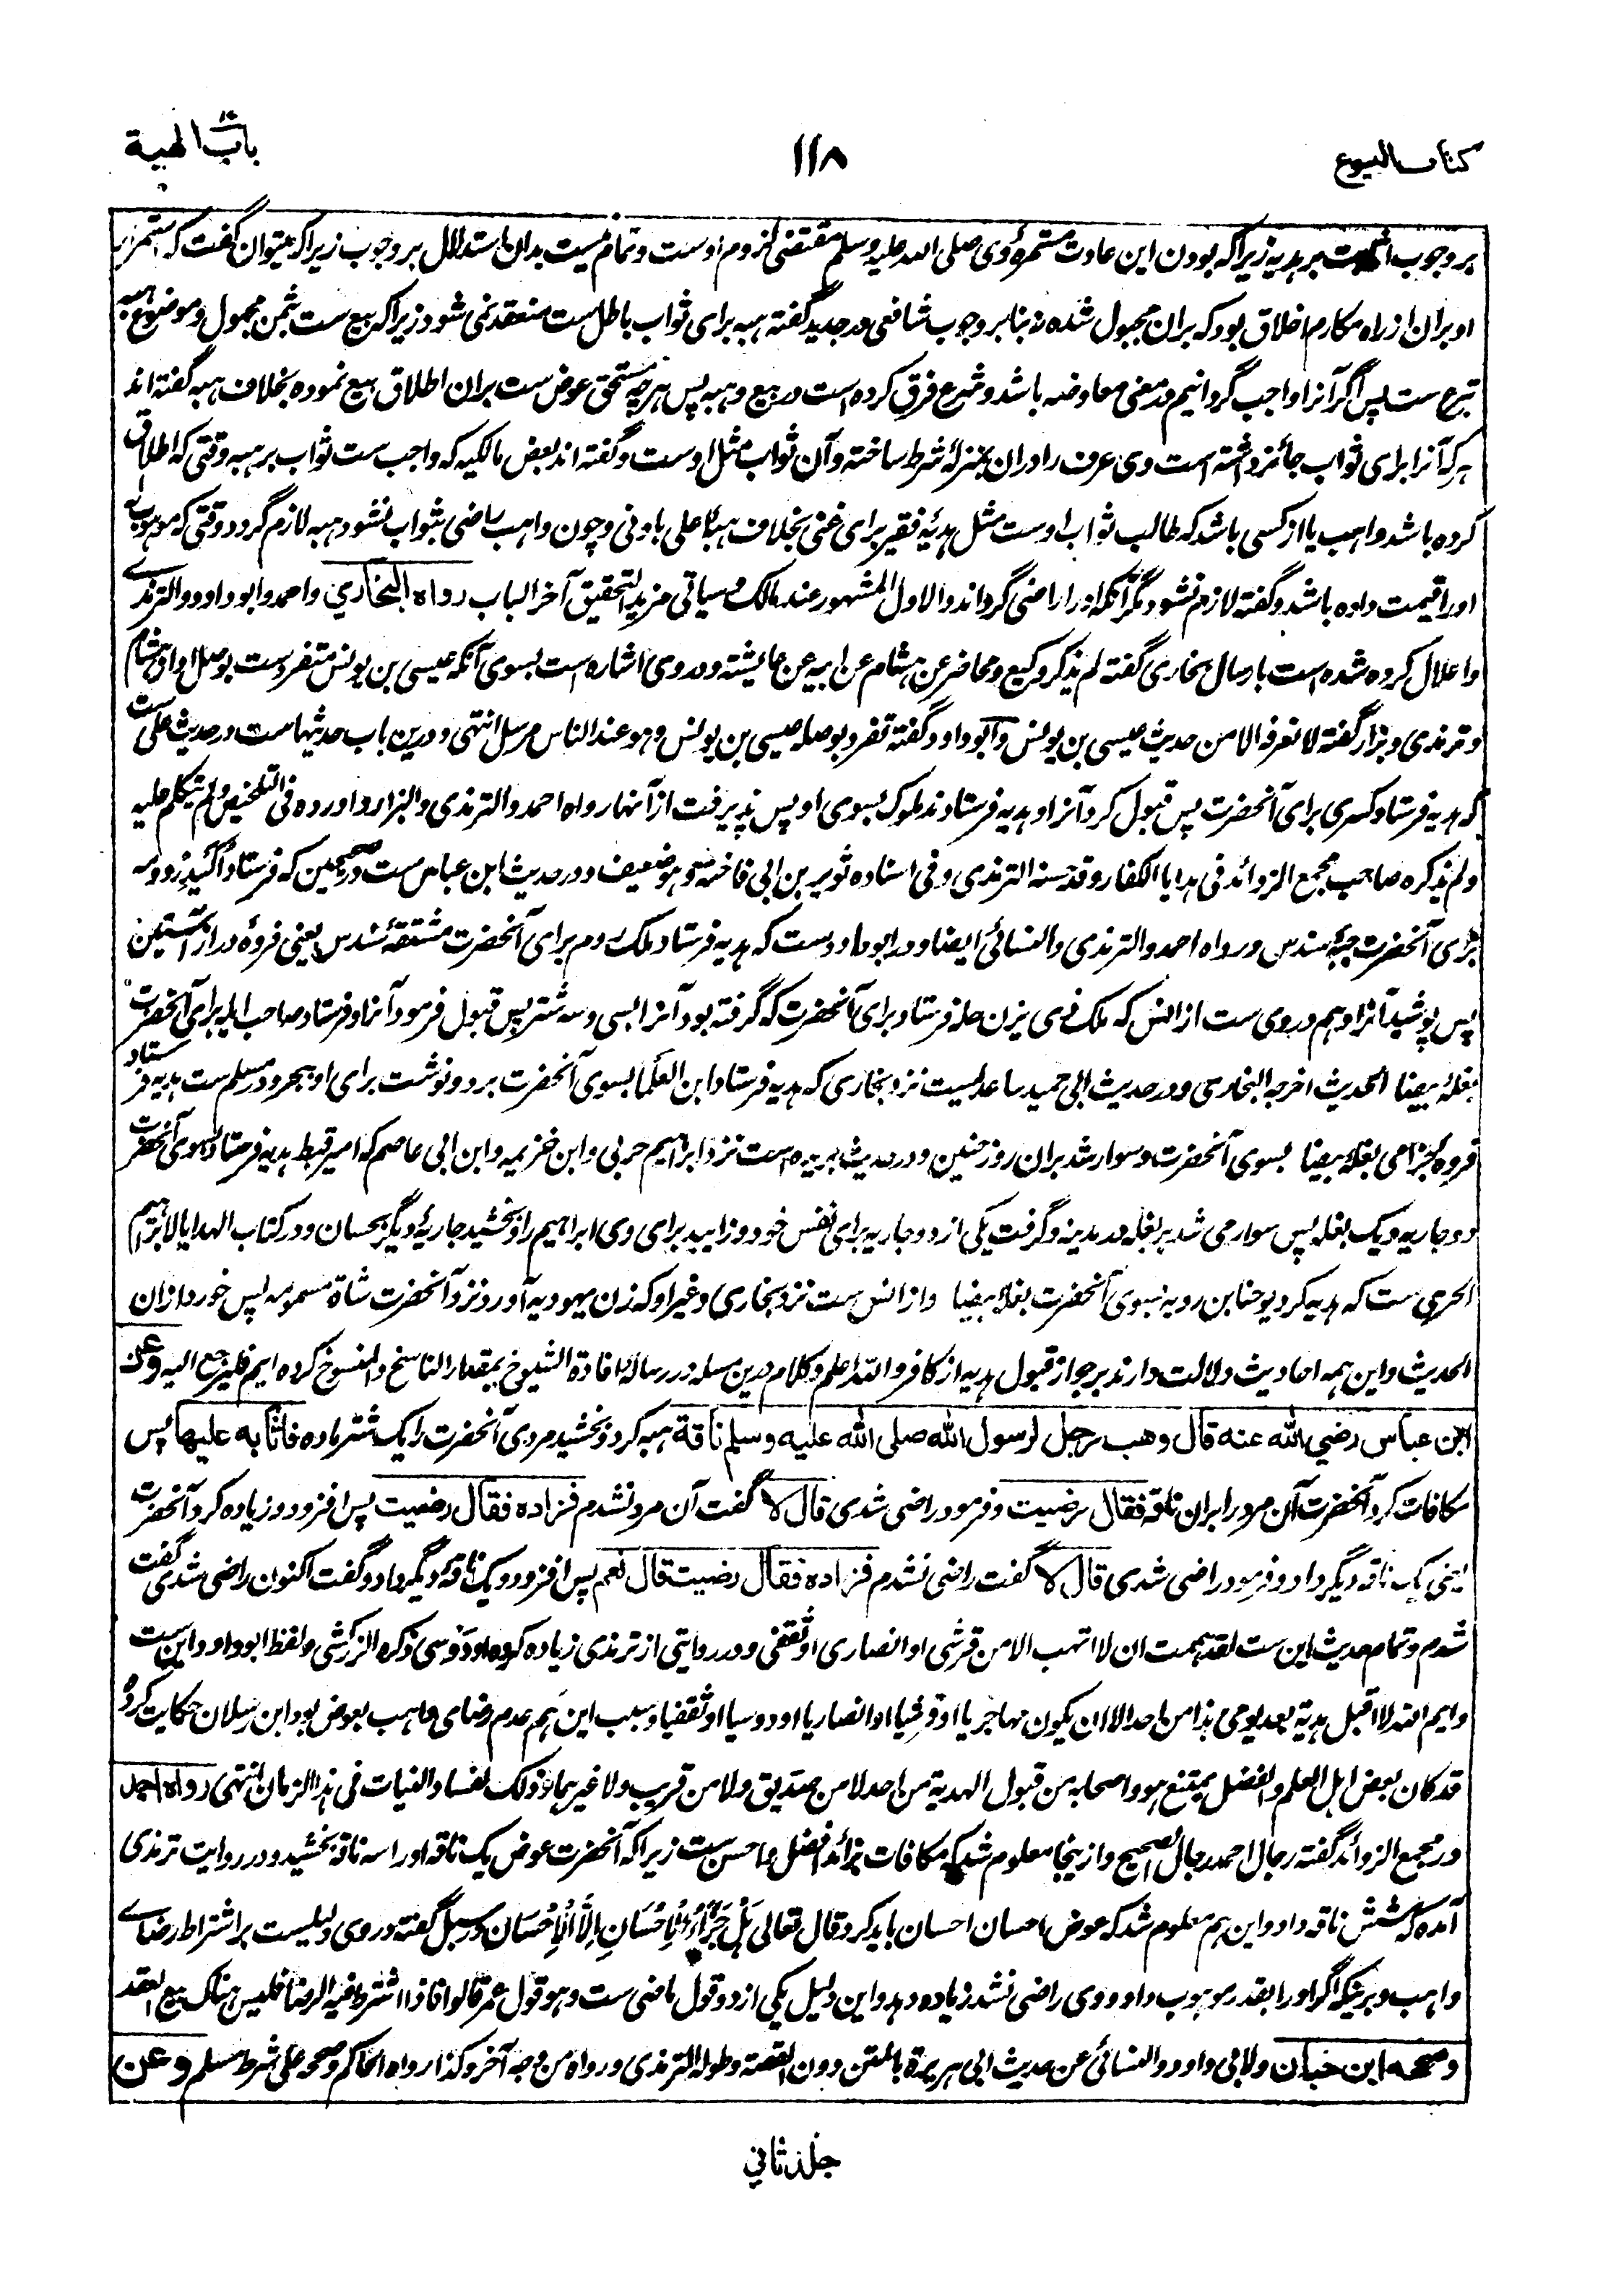 کتاب البیوع
۱۱۸
باب الهبة
بر وجوب اثابت بر ہدیہ زیراکہ بودن این عادت مستمرہ وی صلی اللہ علیہ وسلم مقتضی لزوم اوست و تمام نیست بدان استدلال بر وجوب زیراکہ میتوان گفت کہ استمرار
او بران از راہ مکارم اخلاق بود کہ بران مجبول شدہ نہ بنابر وجوب شافعی در جدید گفتہ ہبہ برای ثواب باطل ست منعقد نمی شود زیراکہ بیع ست بثمن مجہول و موضوع ہبہ
تبرع ست پس اگر آنرا واجب گردانیم در معنی معاوضہ باشد و شرع فرق کردہ است در بیع و ہبہ پس ہرچہ مستحق عوض ست بران اطلاق بیع نمودہ بخلاف ہبہ گفتہ اند
ہرکہ آنرا برای ثواب جائز داشتہ است وی عرف را دران بمنزلۂ شرط ساختہ و آن ثواب مثل اوست و گفتہ اند بعض مالکیہ کہ واجب ست ثواب بر ہبہ وقتی کہ اطلاق
کردہ باشد واہب یا از کسی باشد کہ طالب ثواب اوست مثل ہدیۂ فقیر برای غنی بخلاف ہبۂ اعلی بادنی و چون واہب راضی بثواب نشود ہبہ لازم گردد وقتی کہ موہوب لہ
او را قیمت دادہ باشد و گفتہ لازم نشود مگر آنکہ او را راضی گرداند والاول المشهور عند مالک وسیاتی مزید لتحقیق آخر الباب رواه البخاري واحمد وابو داود والترمذی
و اعلال کردہ شدہ است بارسال بخاری گفتہ لم یذکر وکیع ومحاضر عن ہشام عن ابیہ عن عایشة و در وی اشارہ است بسوی آنکہ عیسی بن یونس متفرد ست بوصل او از ہشام
و ترمذی و بزار گفتہ لا نعرفہ الا من حدیث عیسی بن یونس و آبو داود گفتہ تفرد بوصلہ عیسی بن یونس وہو عند الناس مرسل انتہی و درین باب حدیثہا ست در حدیث علی ست
کہ ہدیہ فرستاد کسری برای آنحضرت پس قبول کرد آنرا و ہدیہ فرستادند ملوک بسوی او پس پذیرفت از آنہا رواہ احمد والترمذی والبزار و اوردہ فی التلخیص ولم یتکلم علیہ
ولم یذکرہ صاحب مجمع الزوائد فی ہدایا الکفار وقد حسنہ الترمذی وفی اسنادہ ثویر بن ابی فاختہ وہو ضعیف و در حدیث ابن عباس ست در صحیحین کہ فرستاد اکیدر دومہ
برای آنحضرت جبۂ سندس و رواہ احمد والترمذی والنسائی ایضا و در ابو داود ست کہ ہدیہ فرستاد ملک روم برای آنحضرت مشتقۂ سندس یعنی فروۂ دراز آستین
پس پوشید آنرا و ہم در وی ست از انس کہ ملک ذی یزن حلہ فرستاد برای آنحضرت کہ گرفتہ بود آنرا بسی و سہ شتر پس قبول فرمود آنرا و فرستاد صاحب ایلہ برای آنحضرت
بغلۂ بیضا الحدیث اخرجہ البخاری و در حدیث ابی حمید ساعدیست نزد بخاری کہ ہدیہ فرستاد ابن العلما بسوی آنحضرت برد و نوشت برای او ببحر و در مسلم ست ہدیہ فرستاد
فروہ جذامی بغلۂ بیضا بسوی آنحضرت و سوار شد بران روز حنین و در حدیث بریدہ است نزد ابراہیم حربی و ابن خزیمہ و ابن ابی عاصم کہ امیر قبط ہدیہ فرستاد بسوی آنحضرت
دو جاریہ و یک بغلہ پس سوار می شد بر بغلہ در مدینہ و گرفت یکی از دو جاریہ برای نفس خود و زایید برای وی ابراہیم را و بخشید جاریۂ دیگر بحسان و در کتاب الہدایا لابراہیم
الحربی ست کہ ہدیہ کرد یوحنا بن رویہ بسوی آنحضرت بغلۂ بیضا و از انس ست نزد بخاری و غیر او کہ زن یہودیہ آورد نزد آنحضرت شاة مسمومہ پس خورد ازان
الحدیث و این ہمہ احادیث دلالت دارند بر جواز قبول ہدیہ از کافر واللہ اعلم و کلام درین مسئلہ در رسالۂ افادة الشیوخ بمقدار الناسخ والمنسوخ کردہ ایم فلیرجع الیہ وعن
ابن عباس رضي الله عنه قال وهب رجل لرسول الله صلى الله عليه وسلم ناقة ہبہ کرد و بخشید مردی آنحضرت را یک شتر مادہ فاثابه عليها پس
مکافات کرد آنحضرت آن مرد را بران ناقہ فقال رضيت و فرمود راضی شدی قال لا گفت آن مرد نشدم فزاده فقال رضيت پس افزود و زیادہ کرد آنحضرت
یعنی یک ناقہ دیگر داد و فرمود راضی شدی قال لا گفت راضی نشدم فزاده فقال رضيت قال نعم پس افزود و یک ناقۂ دیگر داد و گفت اکنون راضی شدی گفت
شدم و تمام حدیث این ست لقد ہممت ان لا اتہب الا من قرشی او انصاری او ثقفی و در روایتی از ترمذی زیادہ کردہ او دوسی ذکرہ الزرکشی و لفظ ابو داود این ست
وایم اللہ لا اقبل ہدیة بعد یومی ہذا من احد الا ان یکون مہاجریا او قرشیا او انصاریا او دوسیا او ثقفیا و سبب این ہم عدم رضای واہب بعوض بود ابن رسلان حکایت کردہ
قد کان بعض اہل العلم والفضل یمتنع ہو واصحابہ من قبول الہدیة من احد لا من صدیق ولا من قریب ولا غیرہما وذلک لفساد النیات فی ہذا الزمان انتہی رواه احمد
در مجمع الزوائد گفتہ رجال احمد رجال الصحیح و ازینجا معلوم شد کہ مکافات بزائد افضل و احسن ست زیراکہ آنحضرت عوض یک ناقہ او را سہ ناقہ بخشید و در روایت ترمذی
آمدہ کہ شش ناقہ داد و این ہم معلوم شد کہ عوض احسان احسان باید کرد قال تعالی ہَلْ جَزَاءُ الْاِحْسَانِ اِلَّا الْاِحْسَان در سبل گفتہ در وی دلیلیست بر اشتراط رضای
واہب و برینکہ اگر او را بقدر موہوب داد و وی راضی نشد زیادہ دہد و این دلیل یکی از دو قول ماضی ست وہو قول عمر قالوا فاذا اشترط فیہ الرضا فلیس ہناک بیع انعقد
وصححه ابن حبان ولابی داود والنسائی عن حدیث ابی ہریرة بالمتن دون القصة وطولہ الترمذی ورواہ من وجہ آخر وکذا رواہ الحاکم وصححہ علی شرط مسلم وعن
جلد ثاني